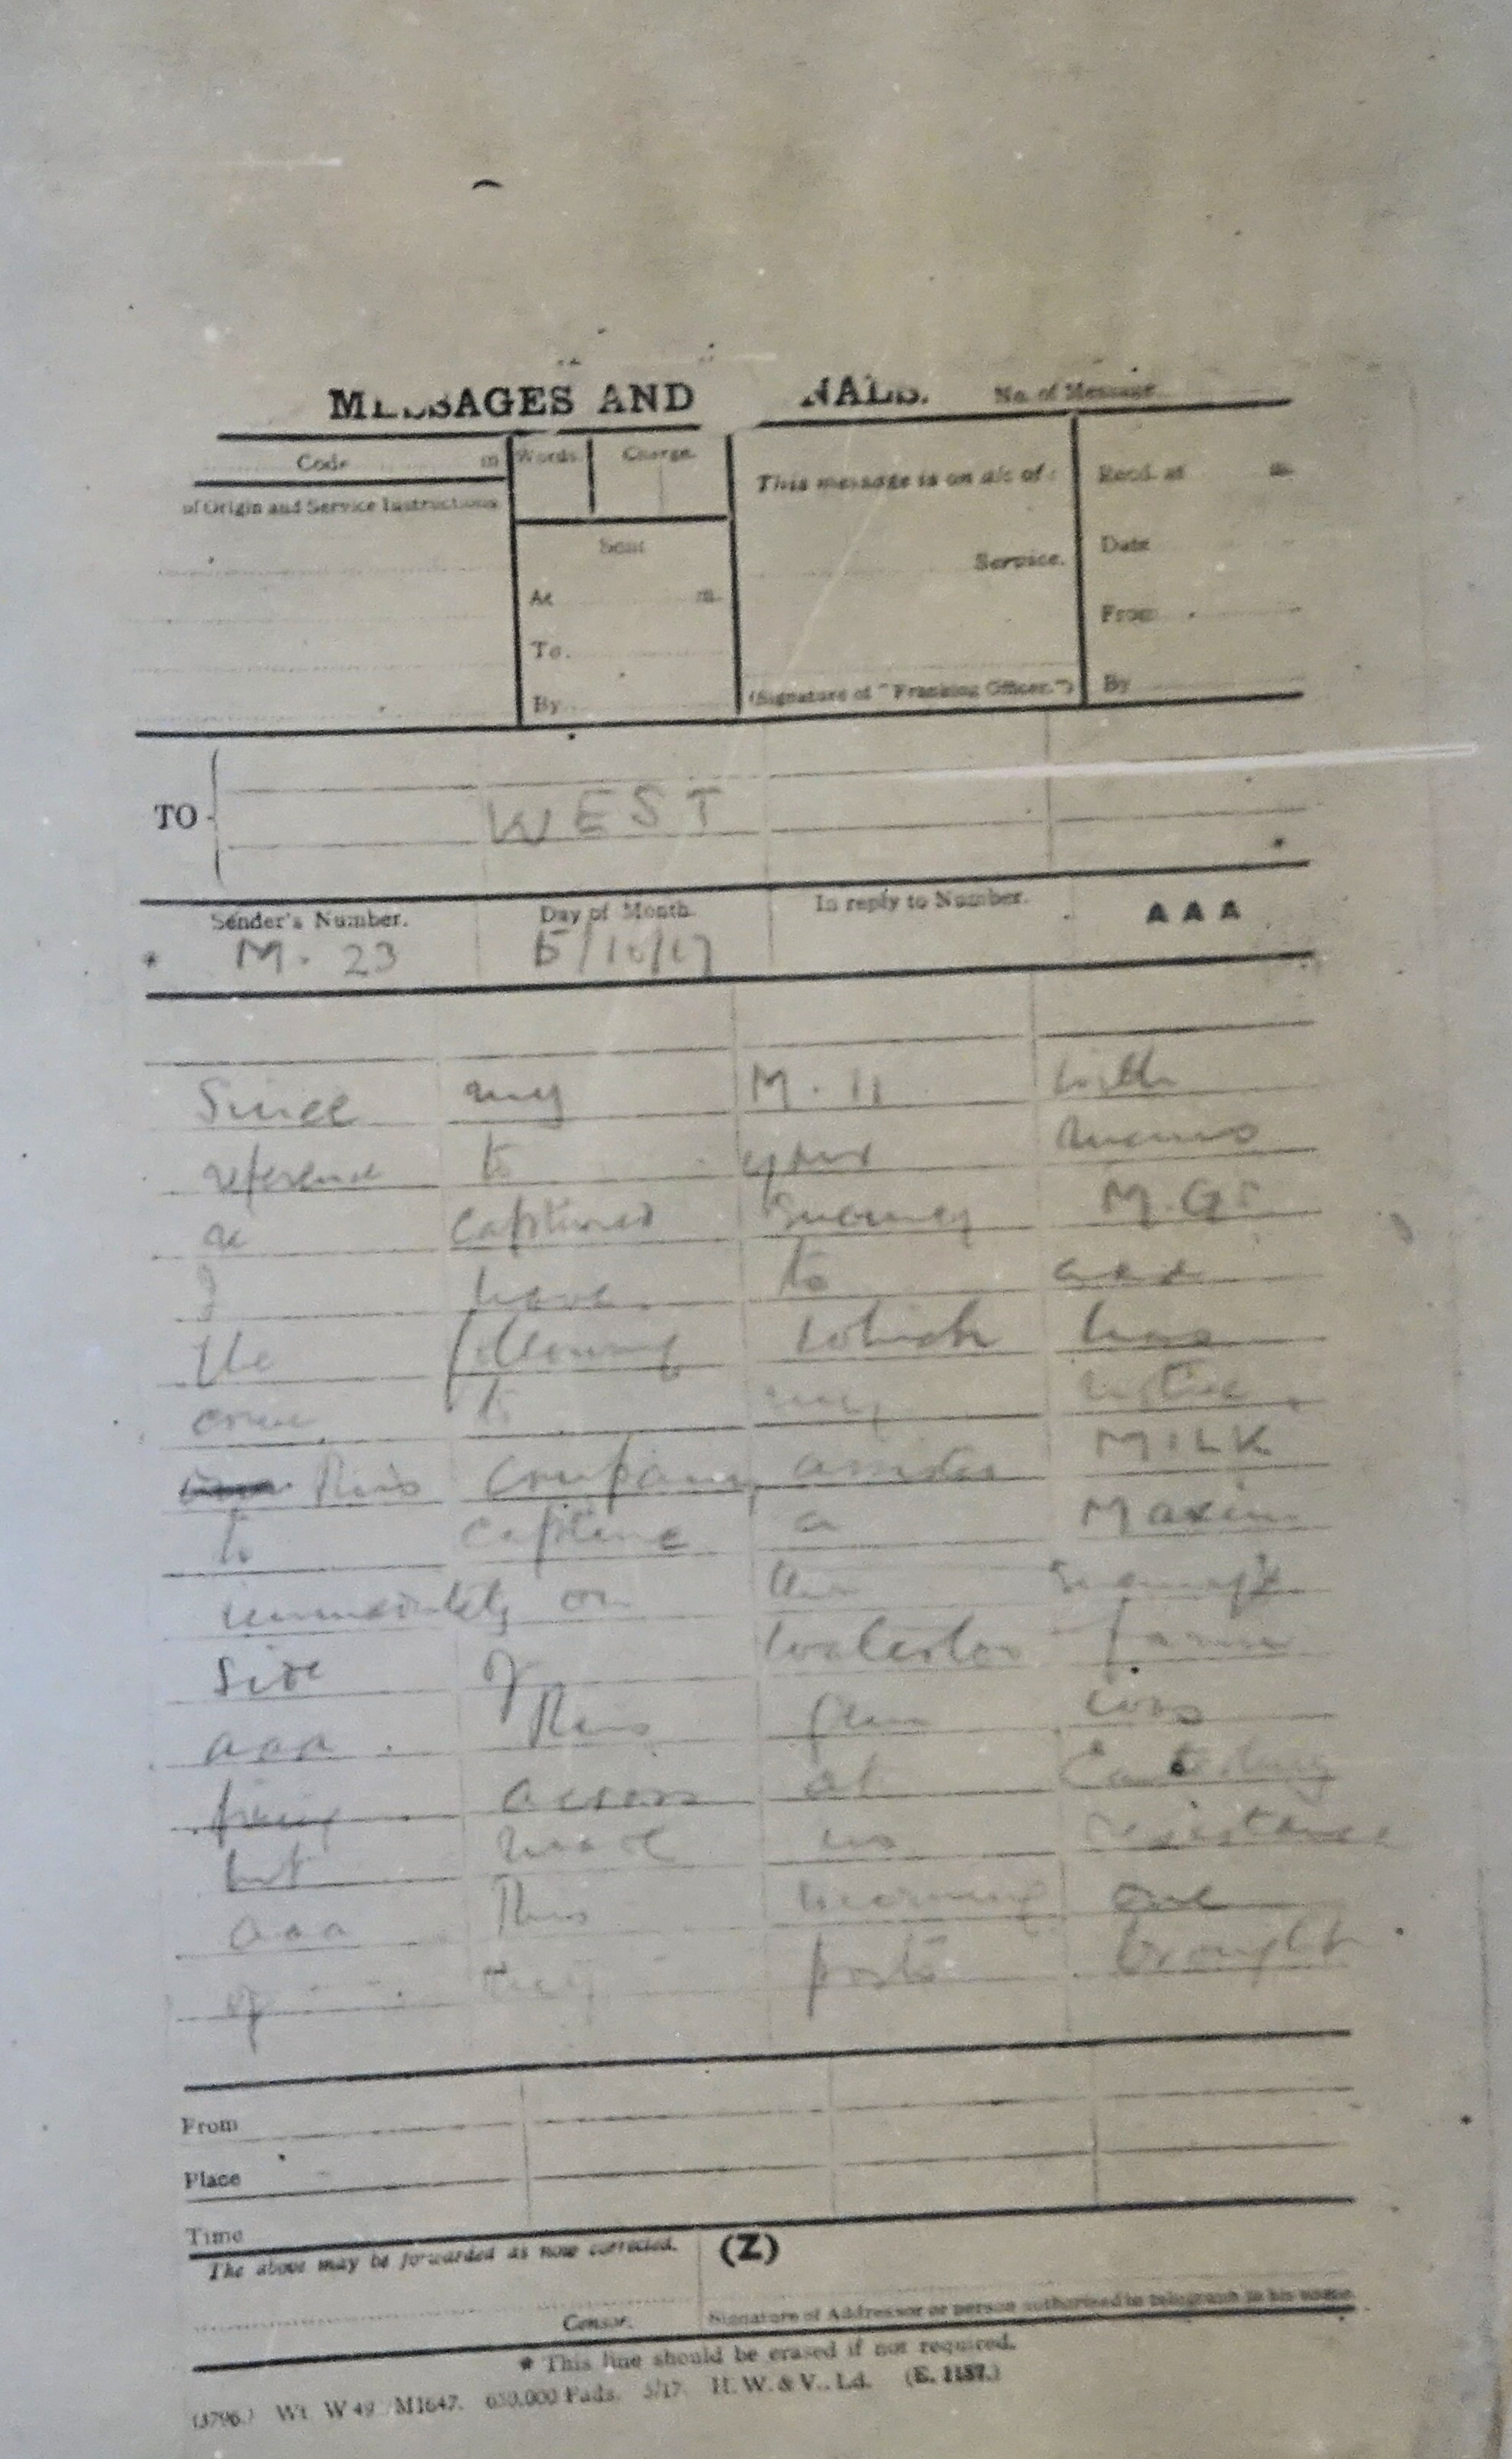 MESSAGES AND NALS. No. of Message
Code m Words. Charge.
This message is on a/c of: Recd. at m.
of Origin and Service Instructions.
Sent
Service. Date
At m.
From
To
By (Signature of "Franking Officer.") By
TO WEST
Sender's Number. Day of Month. In reply to Number. AAA
* M. 23 5/10/17
Since my M. 11 with
reference to your
re captured enemy M.Gs
I have to add
the following which has
come to my notice
This company assisted MILK
to capture a Maxim
immediately on the enemy's
side of Waterloo farm
aaa This gun was
firing across at
but made no resistance
aaa This morning one
of my posts brought
From
Place
Time
The above may be forwarded as now corrected. (Z)
Censor. Signature of Addressor or person authorised to telegraph in his name
* This line should be erased if not required.
(3796.) Wt. W 49 M1647. 650,000 Pads. 5/17. H. W. & V., Ld. (E. 1187.)